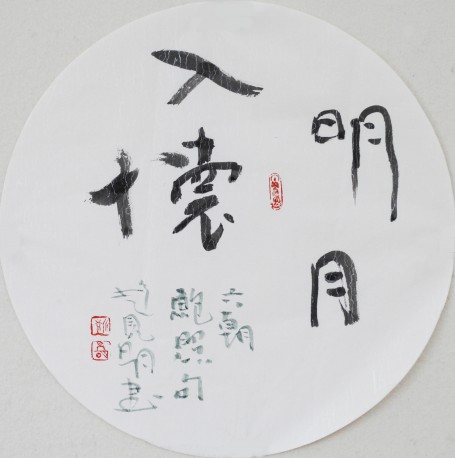 明月
入懷
六朝
鮑照句
見明書